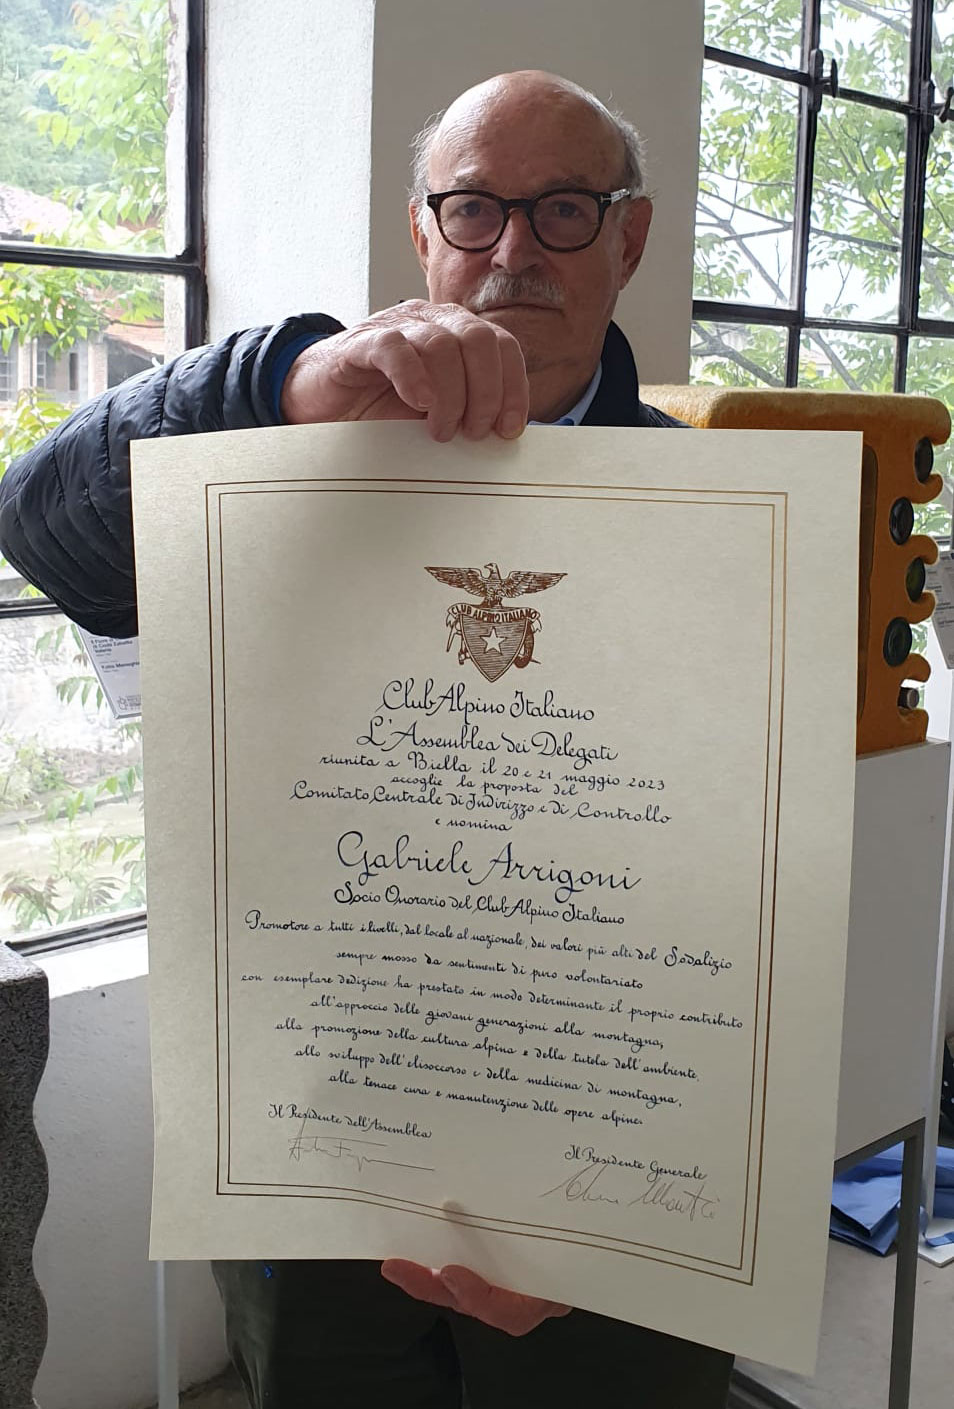 CLUB ALPINO ITALIANO
Club Alpino Italiano
L'Assemblea dei Delegati
riunita a Biella il 20 e 21 maggio 2023
accoglie la proposta del
Comitato Centrale di Indirizzo e di Controllo
e nomina
Gabriele Arrigoni
Socio Onorario del Club Alpino Italiano
Promotore a tutti i livelli, dal locale al nazionale, dei valori più alti del Sodalizio
sempre mosso da sentimenti di puro volontariato
con esemplare dedizione ha prestato in modo determinante il proprio contributo
all'approccio delle giovani generazioni alla montagna,
alla promozione della cultura alpina e della tutela dell'ambiente,
allo sviluppo dell'elisoccorso e della medicina di montagna,
alla tenace cura e manutenzione delle opere alpine.
Il Presidente dell'Assemblea
Il Presidente Generale